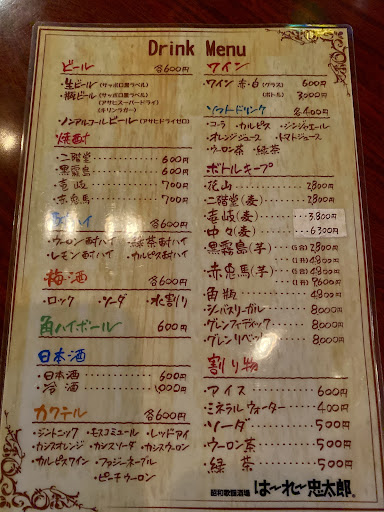 Drink Menu
ビール 各600円
・生ビール(サッポロ黒ラベル)
・瓶ビール(サッポロ黒ラベル)
(アサヒスーパードライ)
(キリンラガー)
・ノンアルコールビール(アサヒドライゼロ)
焼酎
・二階堂 600円
・黒霧島 600円
・壱岐 700円
・赤兎馬 700円
各600円
・ウーロン酎ハイ ・緑茶酎ハイ
・レモン酎ハイ ・カルピス酎ハイ
梅酒 各600円
・ロック ・ソーダ ・水割り
角ハイボール 600円
日本酒
・日本酒 600円
・冷酒 1,000円
カクテル 各600円
・ジントニック ・モスコミュール ・レッドアイ
・カシスオレンジ ・カシスソーダ ・カシスウーロン
・カルピスワイン ・ファジーネーブル
・ピーチウーロン
ワイン
・ワイン 赤・白(グラス) 600円
(ボトル) 3,000円
ソフトドリンク 各400円
・コーラ ・カルピス ・ジンジャエール
・オレンジジュース ・トマトジュース
・ウーロン茶 ・緑茶
ボトルキープ
・花山 2800円
・二階堂(麦) 2800円
・壱岐(麦) 3,800円
・中々(麦) 6300円
・黒霧島(芋) 2800円
・赤兎馬(芋) 4800円
9600円
・角瓶 4800円
・シーバスリーガル 8000円
・グレンフィディック 8000円
・グレンリベット 8000円
割り物
・アイス 600円
・ミネラルウォーター 400円
・ソーダ 500円
・ウーロン茶 500円
・緑茶 500円
昭和歌謡酒場 は〜れ〜忠太郎